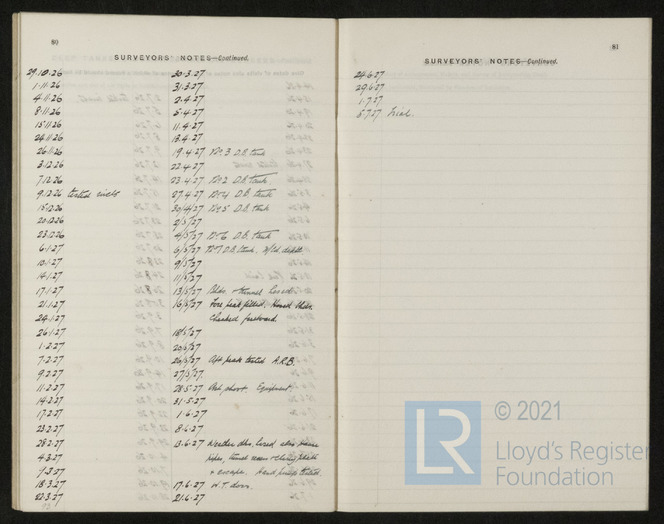 80
SURVEYORS' NOTES—Continued.
29.10.26
1.11.26
4.11.26
8.11.26
15.11.26
24.11.26
26.11.26
3.12.26
7.12.26
9.12.26 tested rivets
15.12.26
20.12.26
23.12.26
6.1.27
10.1.27
14.1.27
17.1.27
21.1.27
24.1.27
26.1.27
1.2.27
7.2.27
9.2.27
11.2.27
14.2.27
17.2.27
23.2.27
28.2.27
4.3.27
7.3.27
18.3.27
22.3.27
30.3.27
31.3.27
2.4.27
5.4.27
11.4.27
13.4.27
19.4.27 No 3 D.B. tank
22.4.27
23.4.27 No 2 D.B. tank
27.4.27 No 4 D.B. tank
30/4/27 No 5 D.B. tank
2/5/27
4/5/27 No 6 D.B. tank
6/5/27 No 7 D.B. tank.
9/5/27
11/5/27
13/5/27 & tunnel hosed.
16/5/27 Fore peak filled.
forward.
18/5/27
20/5/27
26/5/27 Aft peak tested A.R.B.
27/5/27
28.5.27 Equipment.
31.5.27
1.6.27
8.6.27
13.6.27 Weather dks, hosed also
pipes, tunnel
& escape. Hand pumps tested
17.6.27 W.T. doors.
21.6.27
81
SURVEYORS' NOTES—Continued.
24.6.27
29.6.27
1.7.27
5.7.27 Trial.
LR
© 2021
Lloyd's Register
Foundation